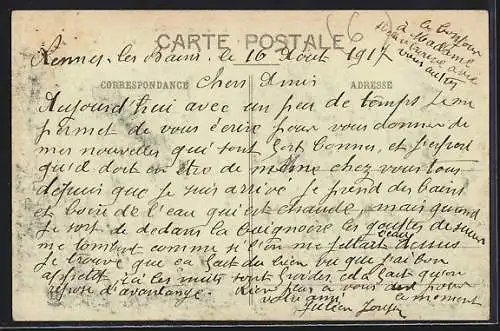 CARTE POSTALE
CORRESPONDANCE
ADRESSE
66
le bonjour
à Madame
Rennes-les Bains, le 16 Août 1917
Chers Amis
Aujourd'hui avec un peu de temps je me
permet de vous écrire pour vous donner de
mes nouvelles qui sont fort bonnes, et j'espère
qu'il doit en être de même chez vous tous
depuis que je suis arrivé je prend des bains
et boire de l'eau qui est chaude, mais quand
je sort de dedans la baignoire les gouttes de sueur
me tombent comme si l'on me jettait dessus
eau
je trouve que ça fait du bien vu que j'ai bon
appetit la les nuits sont froides cela fait qu'on
repose d'avantange. Rien plus a vous pour
votre ami le moment
Julien